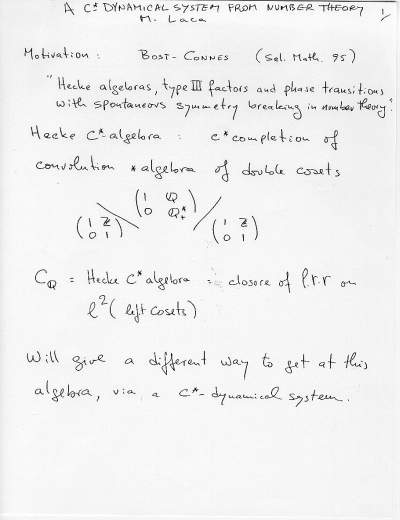 A C* DYNAMICAL SYSTEM FROM NUMBER THEORY 1/
M. Laca
Motivation : BOST-CONNES (Sel. Math. 95)
"Hecke algebras, type III factors and phase transitions
with spontaneous symmetry breaking in number theory"
Hecke C*-algebra : C* completion of
convolution * algebra of double cosets
( 1 Q
0 Q*+ )
( 1 Z
0 1 ) \ / ( 1 Z
0 1 )
C_Q = Hecke C* algebra = closure of l.r.r on
l²( left cosets)
Will give a different way to get at this
algebra, via a C*-dynamical system.